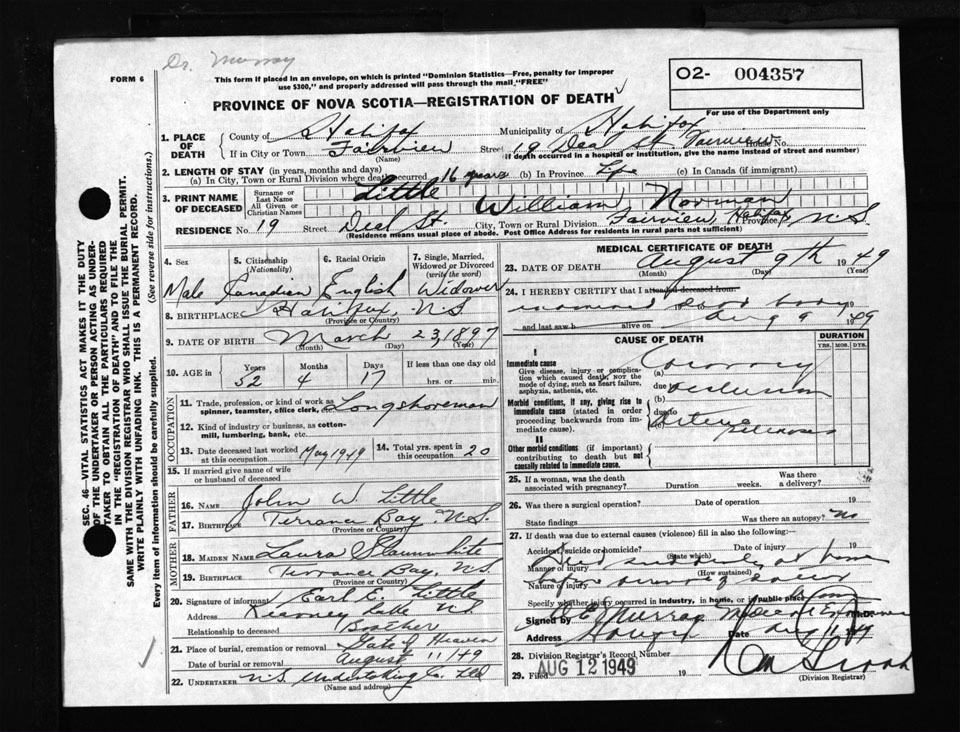 Dr. Murray
FORM 6
This form if placed in an envelope, on which is printed "Dominion Statistics—Free, penalty for improper
use $300," and properly addressed will pass through the mail "FREE"
O2- 004357
For use of the Department only
PROVINCE OF NOVA SCOTIA—REGISTRATION OF DEATH
SEC. 46—VITAL STATISTICS ACT MAKES IT THE DUTY
OF THE UNDERTAKER OR PERSON ACTING AS UNDER-
TAKER TO OBTAIN ALL THE PARTICULARS REQUIRED
IN THE "REGISTRATION OF DEATH" AND TO FILE THE
SAME WITH THE DIVISION REGISTRAR WHO SHALL ISSUE THE BURIAL PERMIT.
WRITE PLAINLY WITH UNFADING INK. THIS IS A PERMANENT RECORD.
Every item of information should be carefully supplied. (See reverse side for instructions.)
1. PLACE OF DEATH
County of Halifax Municipality of Halifax
If in City or Town Fairview Street 19 Deal St Fairview House No.
(Name) (If death occurred in a hospital or institution, give the name instead of street and number)
2. LENGTH OF STAY (in years, months and days)
(a) In City, Town or Rural Division where death occurred 16 years (b) In Province Life (c) In Canada (if immigrant)
3. PRINT NAME OF DECEASED
Surname or Last Name Little
All Given or Christian Names William Norman
RESIDENCE No. 19 Street Deal St. City, Town or Rural Division Fairview, Halifax Province N.S.
(Residence means usual place of abode. Post Office Address for residents in rural parts not sufficient)
4. Sex
5. Citizenship (Nationality)
6. Racial Origin
7. Single, Married, Widowed or Divorced (write the word)
Male Canadian English Widower
8. BIRTHPLACE Halifax, N.S.
(Province or Country)
9. DATE OF BIRTH March 23, 1897
(Month) (Day) (Year)
10. AGE in Years Months Days If less than one day
52 4 17 hrs. or min.
OCCUPATION
11. Trade, profession, or kind of work as spinner, teamster, office clerk, etc. Longshoreman
12. Kind of industry or business, as cotton-mill, lumbering, bank, etc.
13. Date deceased last worked at this occupation May 1949 14. Total yrs. spent in this occupation 20
15. If married give name of wife or husband of deceased
FATHER
16. Name John W. Little
17. Birthplace Terrance Bay N.S.
(Province or Country)
MOTHER
18. Maiden Name Laura Slaunwhite
19. Birthplace Terrance Bay, N.S.
(Province or Country)
20. Signature of informant Earl C. Little
Address Kearney Lake N.S.
Relationship to deceased Brother
21. Place of burial, cremation or removal Gate of Heaven
Date of burial or removal August 11/49
22. UNDERTAKER N.S. Undertaking Co. Ltd
(Name and address)
MEDICAL CERTIFICATE OF DEATH
23. DATE OF DEATH August 9th 1949
(Month) (Day) (Year)
24. I HEREBY CERTIFY that I attended deceased from:
body 19
and last saw h alive on Aug 9 1949
CAUSE OF DEATH
DURATION
YRS. MOS. DYS.
I
Immediate cause
Give disease, injury or complication which caused death, not the mode of dying, such as heart failure, asphyxia, asthenia, etc.
(a) Coronary
due to Occlusion
Morbid conditions, if any, giving rise to immediate cause (stated in order proceeding backwards from immediate cause).
(b)
due to Arterio sclerosis
II
Other morbid conditions (if important) contributing to death but not causally related to immediate cause.
25. If a woman, was the death associated with pregnancy? Duration weeks. Was there a delivery?
26. Was there a surgical operation? Date of operation 19
State findings Was there an autopsy? No
27. If death was due to external causes (violence) fill in also the following:
Accident, suicide or homicide? Date of injury 19
(State which)
Manner of injury Died suddenly at home
(How sustained)
Nature of injury before
Specify whether injury occurred in industry, in home, or in public place
Signed by Murray Medical Examiner
Address Date Aug 11/49
28. Division Registrar's Record Number
29. Filed AUG 12 1949 19
(Division Registrar)